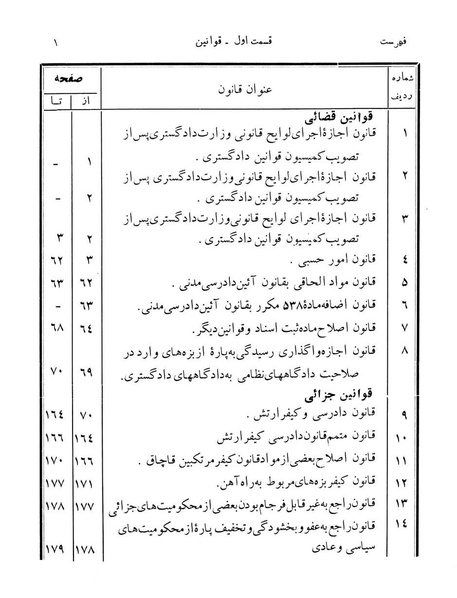 فهرست قسمت اول - قوانین ۱
شماره ردیف عنوان قانون صفحه
از تا
قوانین قضائی
۱ قانون اجازهٔ اجرای لوایح قانونی وزارت دادگستری پس از
تصویب کمیسیون قوانین دادگستری . ۱ -
۲ قانون اجازهٔ اجرای لوایح قانونی وزارت دادگستری پس از
تصویب کمیسیون قوانین دادگستری . ۲ -
۳ قانون اجازهٔ اجرای لوایح قانونی وزارت دادگستری پس از
تصویب کمیسیون قوانین دادگستری . ۲ ۳
۴ قانون امور حسبی . ۳ ۶۲
۵ قانون مواد الحاقی بقانون آئین دادرسی مدنی . ۶۲ ۶۳
۶ قانون اضافه مادهٔ ۵۳۸ مکرر بقانون آئین دادرسی مدنی. ۶۳ -
۷ قانون اصلاح ماده ثبت اسناد و قوانین دیگر. ۶۴ ۶۸
۸ قانون اجازه واگذاری رسیدگی به پارهٔ از بزه‌های وارد در
صلاحیت دادگاههای نظامی به دادگاههای دادگستری. ۶۹ ۷۰
قوانین جزائی
۹ قانون دادرسی و کیفر ارتش . ۷۰ ۱۶۴
۱۰ قانون متمم قانون دادرسی کیفر ارتش ۱۶۴ ۱۶۶
۱۱ قانون اصلاح بعضی از مواد قانون کیفر مرتکبین قاچاق . ۱۶۶ ۱۷۰
۱۲ قانون کیفر بزه‌های مربوط به راه آهن. ۱۷۱ ۱۷۷
۱۳ قانون راجع به غیر قابل فرجام بودن بعضی از محکومیت‌های جزائی ۱۷۷ ۱۷۸
۱۴ قانون راجع به عفو و بخشودگی و تخفیف پارهٔ از محکومیت‌های
سیاسی و عادی ۱۷۸ ۱۷۹